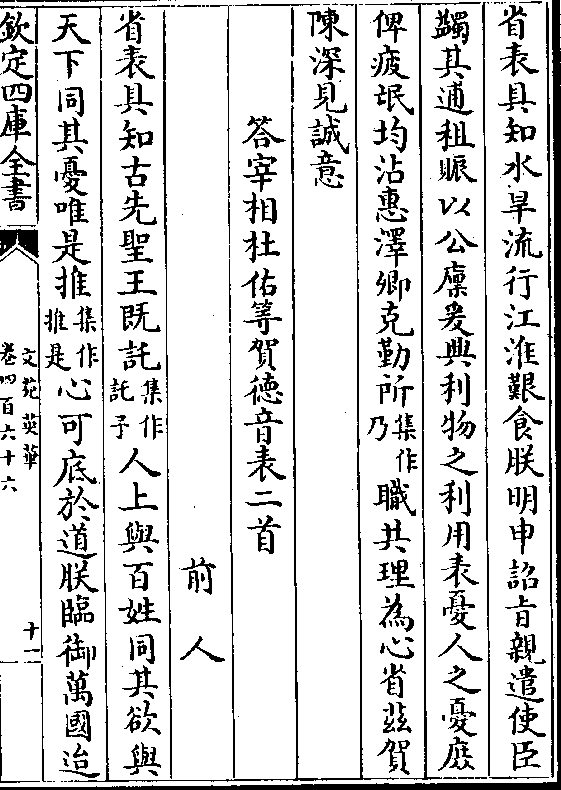 省表具知水旱流行江淮艱食朕明申詔㫖親遣使臣
蠲其逋租賑以公廩爰興利物之利用表憂人之憂庶
俾疲氓均沾惠澤卿克勤所集作乃職共理為心省茲賀
陳深見誠意
答宰相杜佑等賀德音表二首
前人
省表具知古先聖王既託集作託予人上與百姓同其欲與
天下同其憂唯是推集作推是心可底於道朕臨御萬國迨
欽定四庫全書
文苑英華
卷四百六十六
十一